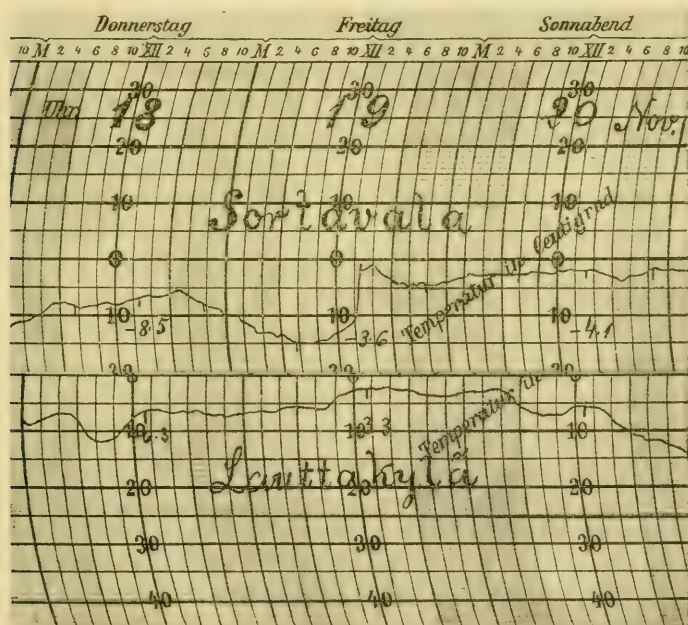 Donnerstag Freitag Sonnabend
10 M 2 4 6 8 10 XII 2 4 6 8 10 M 2 4 6 8 10 XII 2 4 6 8 10 M 2 4 6 8 10 XII 2 4 6 8 10
30 30 30
Uhr 18 19 20 Nov.
20 20 20
10 10 10
Sortavala
0 0 0
Temperatur in Centigrad
10 10 10
-8.5 -3.6 -4.1
20 20 20
10 10 10
3.3
Temperatur in
Lauttakylä
20 20 20
30 30 30
40 40 40